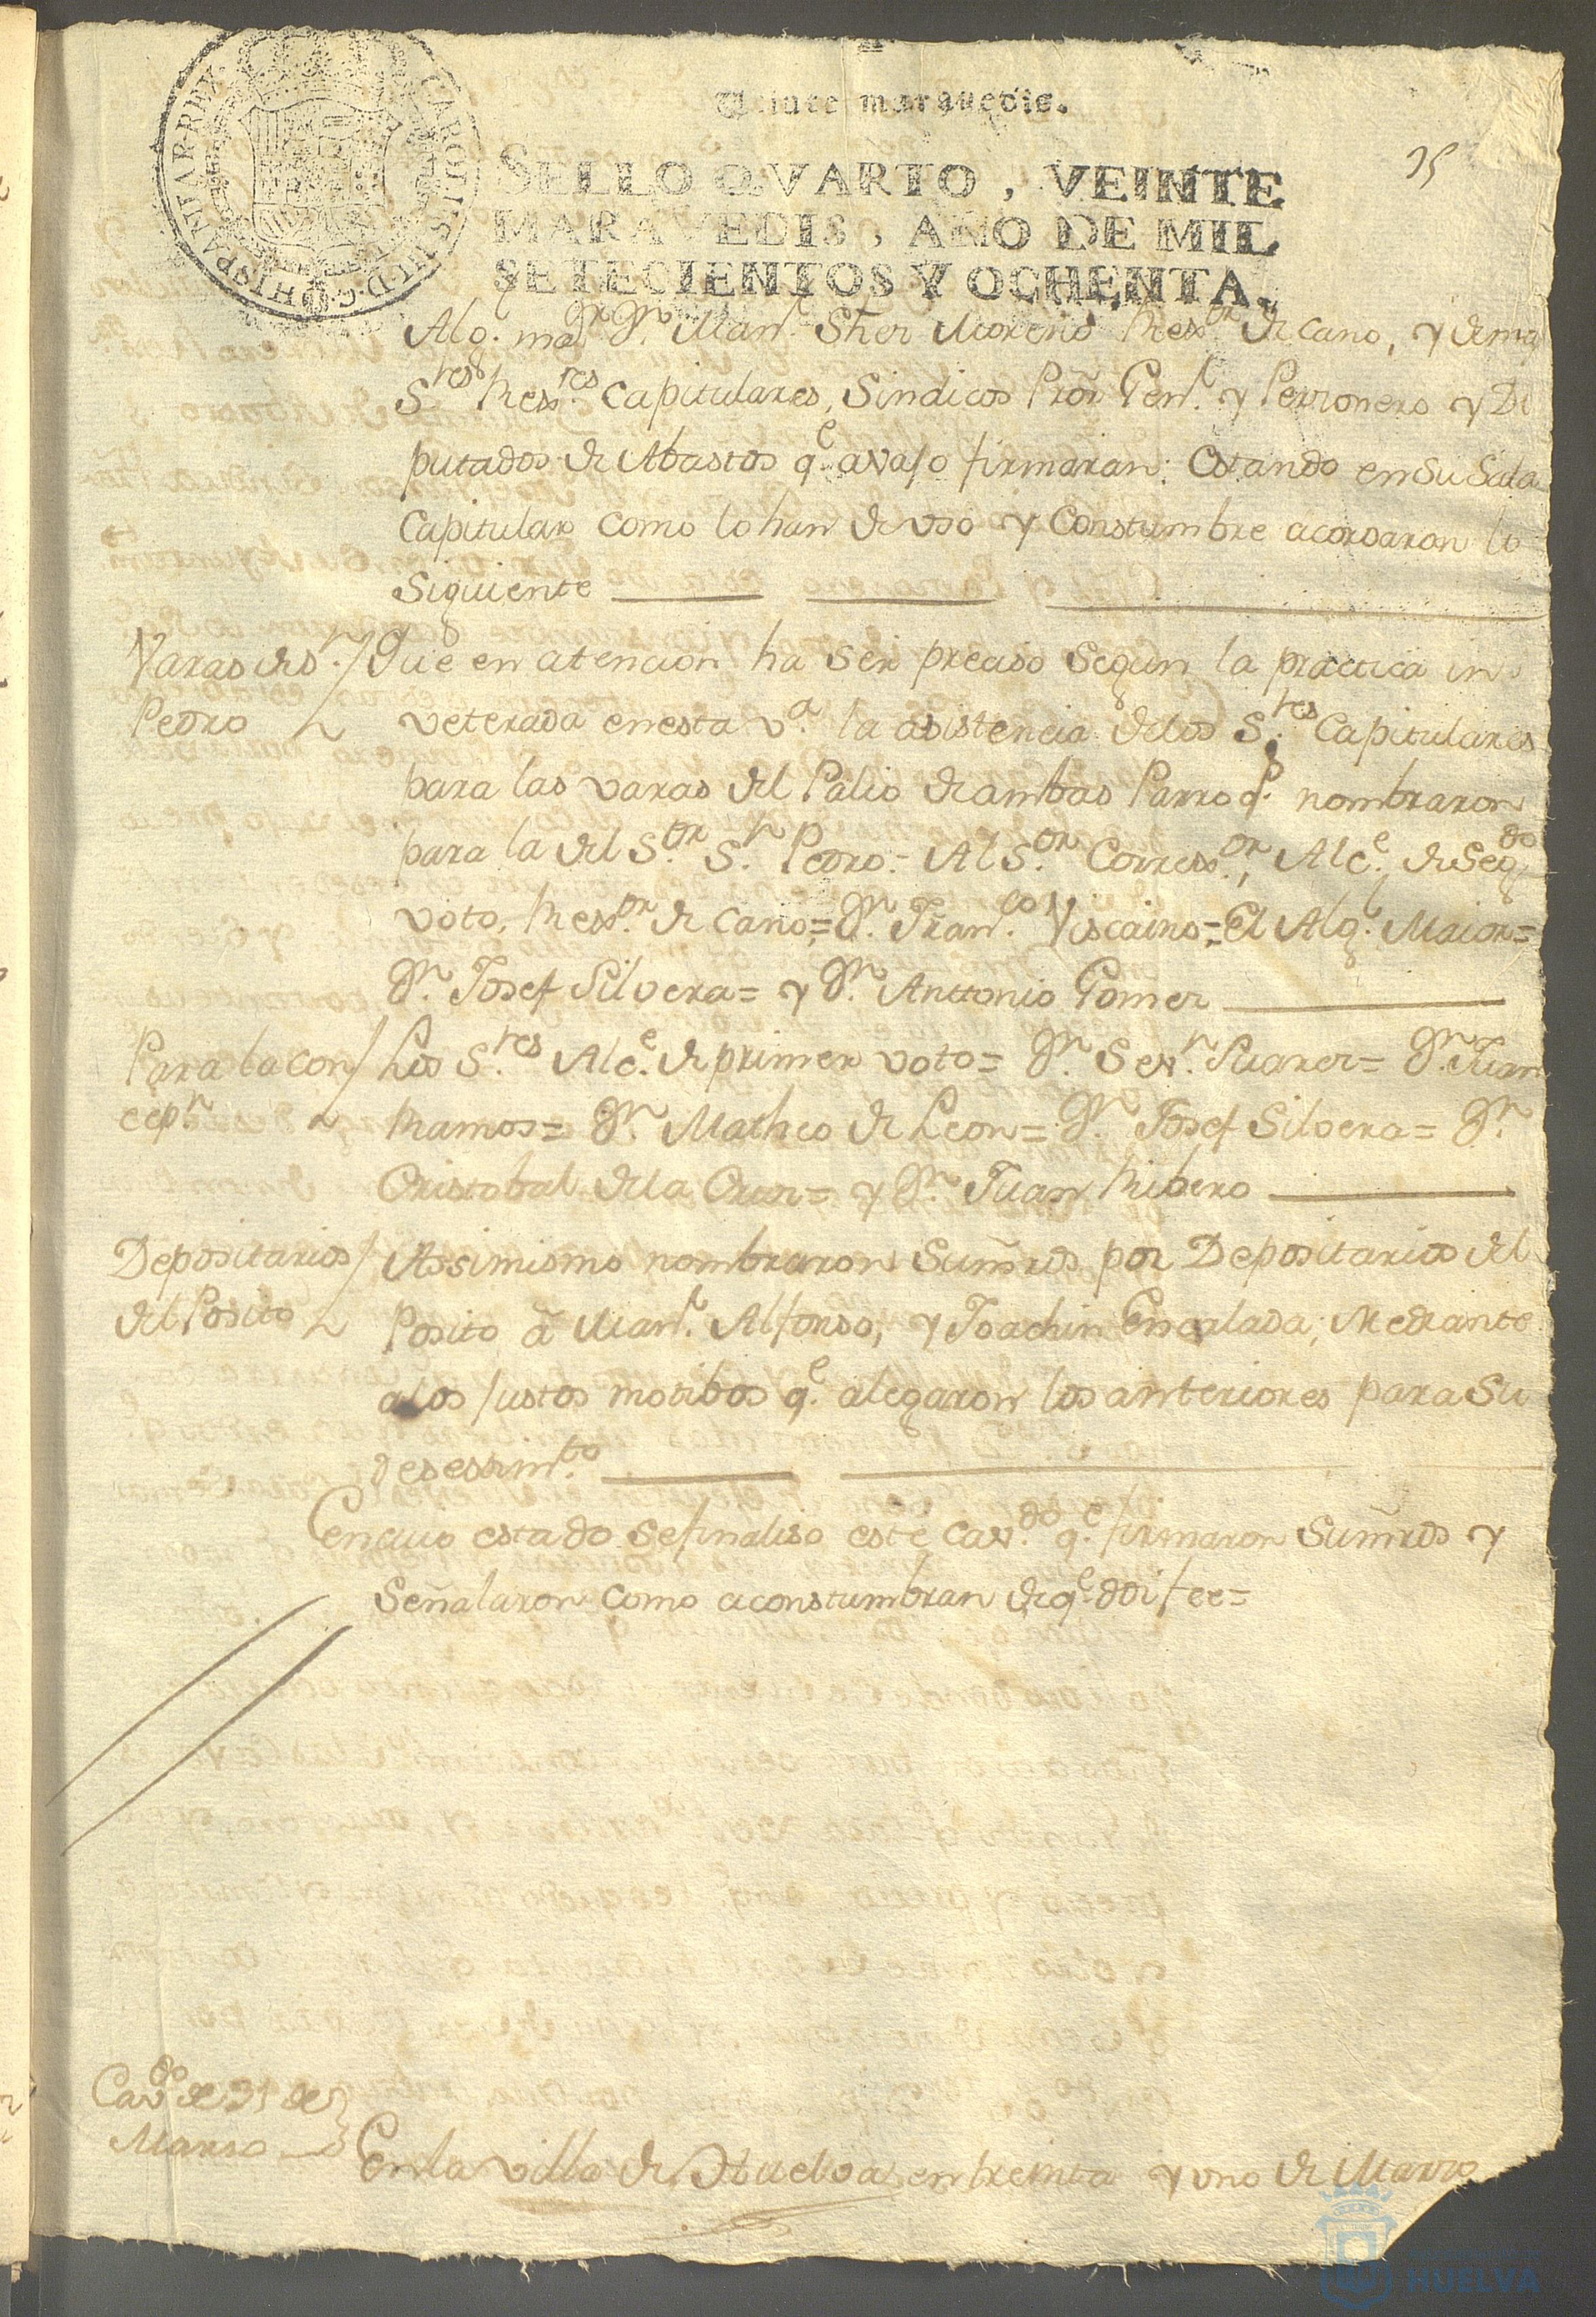 Veinte maravedis.
SELLO QVARTO, VEINTE
MARAVEDIS, AÑO DE MIL
SETECIENTOS Y OCHENTA.
CAROLUS III D. G. HISPANIAR REX
35
Alg. maor Dn. Manl. Shez Moreno Rexor. Decano, y demas
Sres. Rexres. Capitulares, Sindicos Pror Genl. y Perzonero y Di
putados de Abastos qe. avajo firmaran: Estando en su Sala
Capitular como lo han de uso y Constumbre acordaron lo
Siguiente
Varas de Sn. Pedro
Que en atencion ha ser preciso segun la practica in
veterada en esta va. la asistencia de los Sres. Capitulares
para las varas del Palio de ambas Parroqs. nombraron
para la del Sor. Sn. Pedro.- Al Sor. Correxor., Alce. de Segdo
voto, Rexor. decano,= Dn. Franco. Viscaino= El Algl. Maior=
Dn. Josef Silvera= y Dn. Anttonio Gomez
Para la con
cepn
Los Sres. Alce. de primer voto= Dn. Sevn. Suarez= Dn. Juan
Ramos= Dn. Matheo de Leon= Dn. Josef Silvera= Dn.
Cristobal dela Cruz= y Dn. Juan Ribero
Depositarios
del Posito
Assimismo nombraron Sumrds por Depositarios del
Posito â Manl. Alfonso, y Joachin Encalada; Mediante
a los justos motibos qe. alegaron los anteriores para su
desessimto.
En cuio estado se finaliso este Cavdo. qe. firmaron Sumrds y
Señalaron como aconstumbran de qe. doi fee=
Cavdo de 31 de
Marzo
En la villa de Huelva en treinta y uno de Marzo
HUELVA